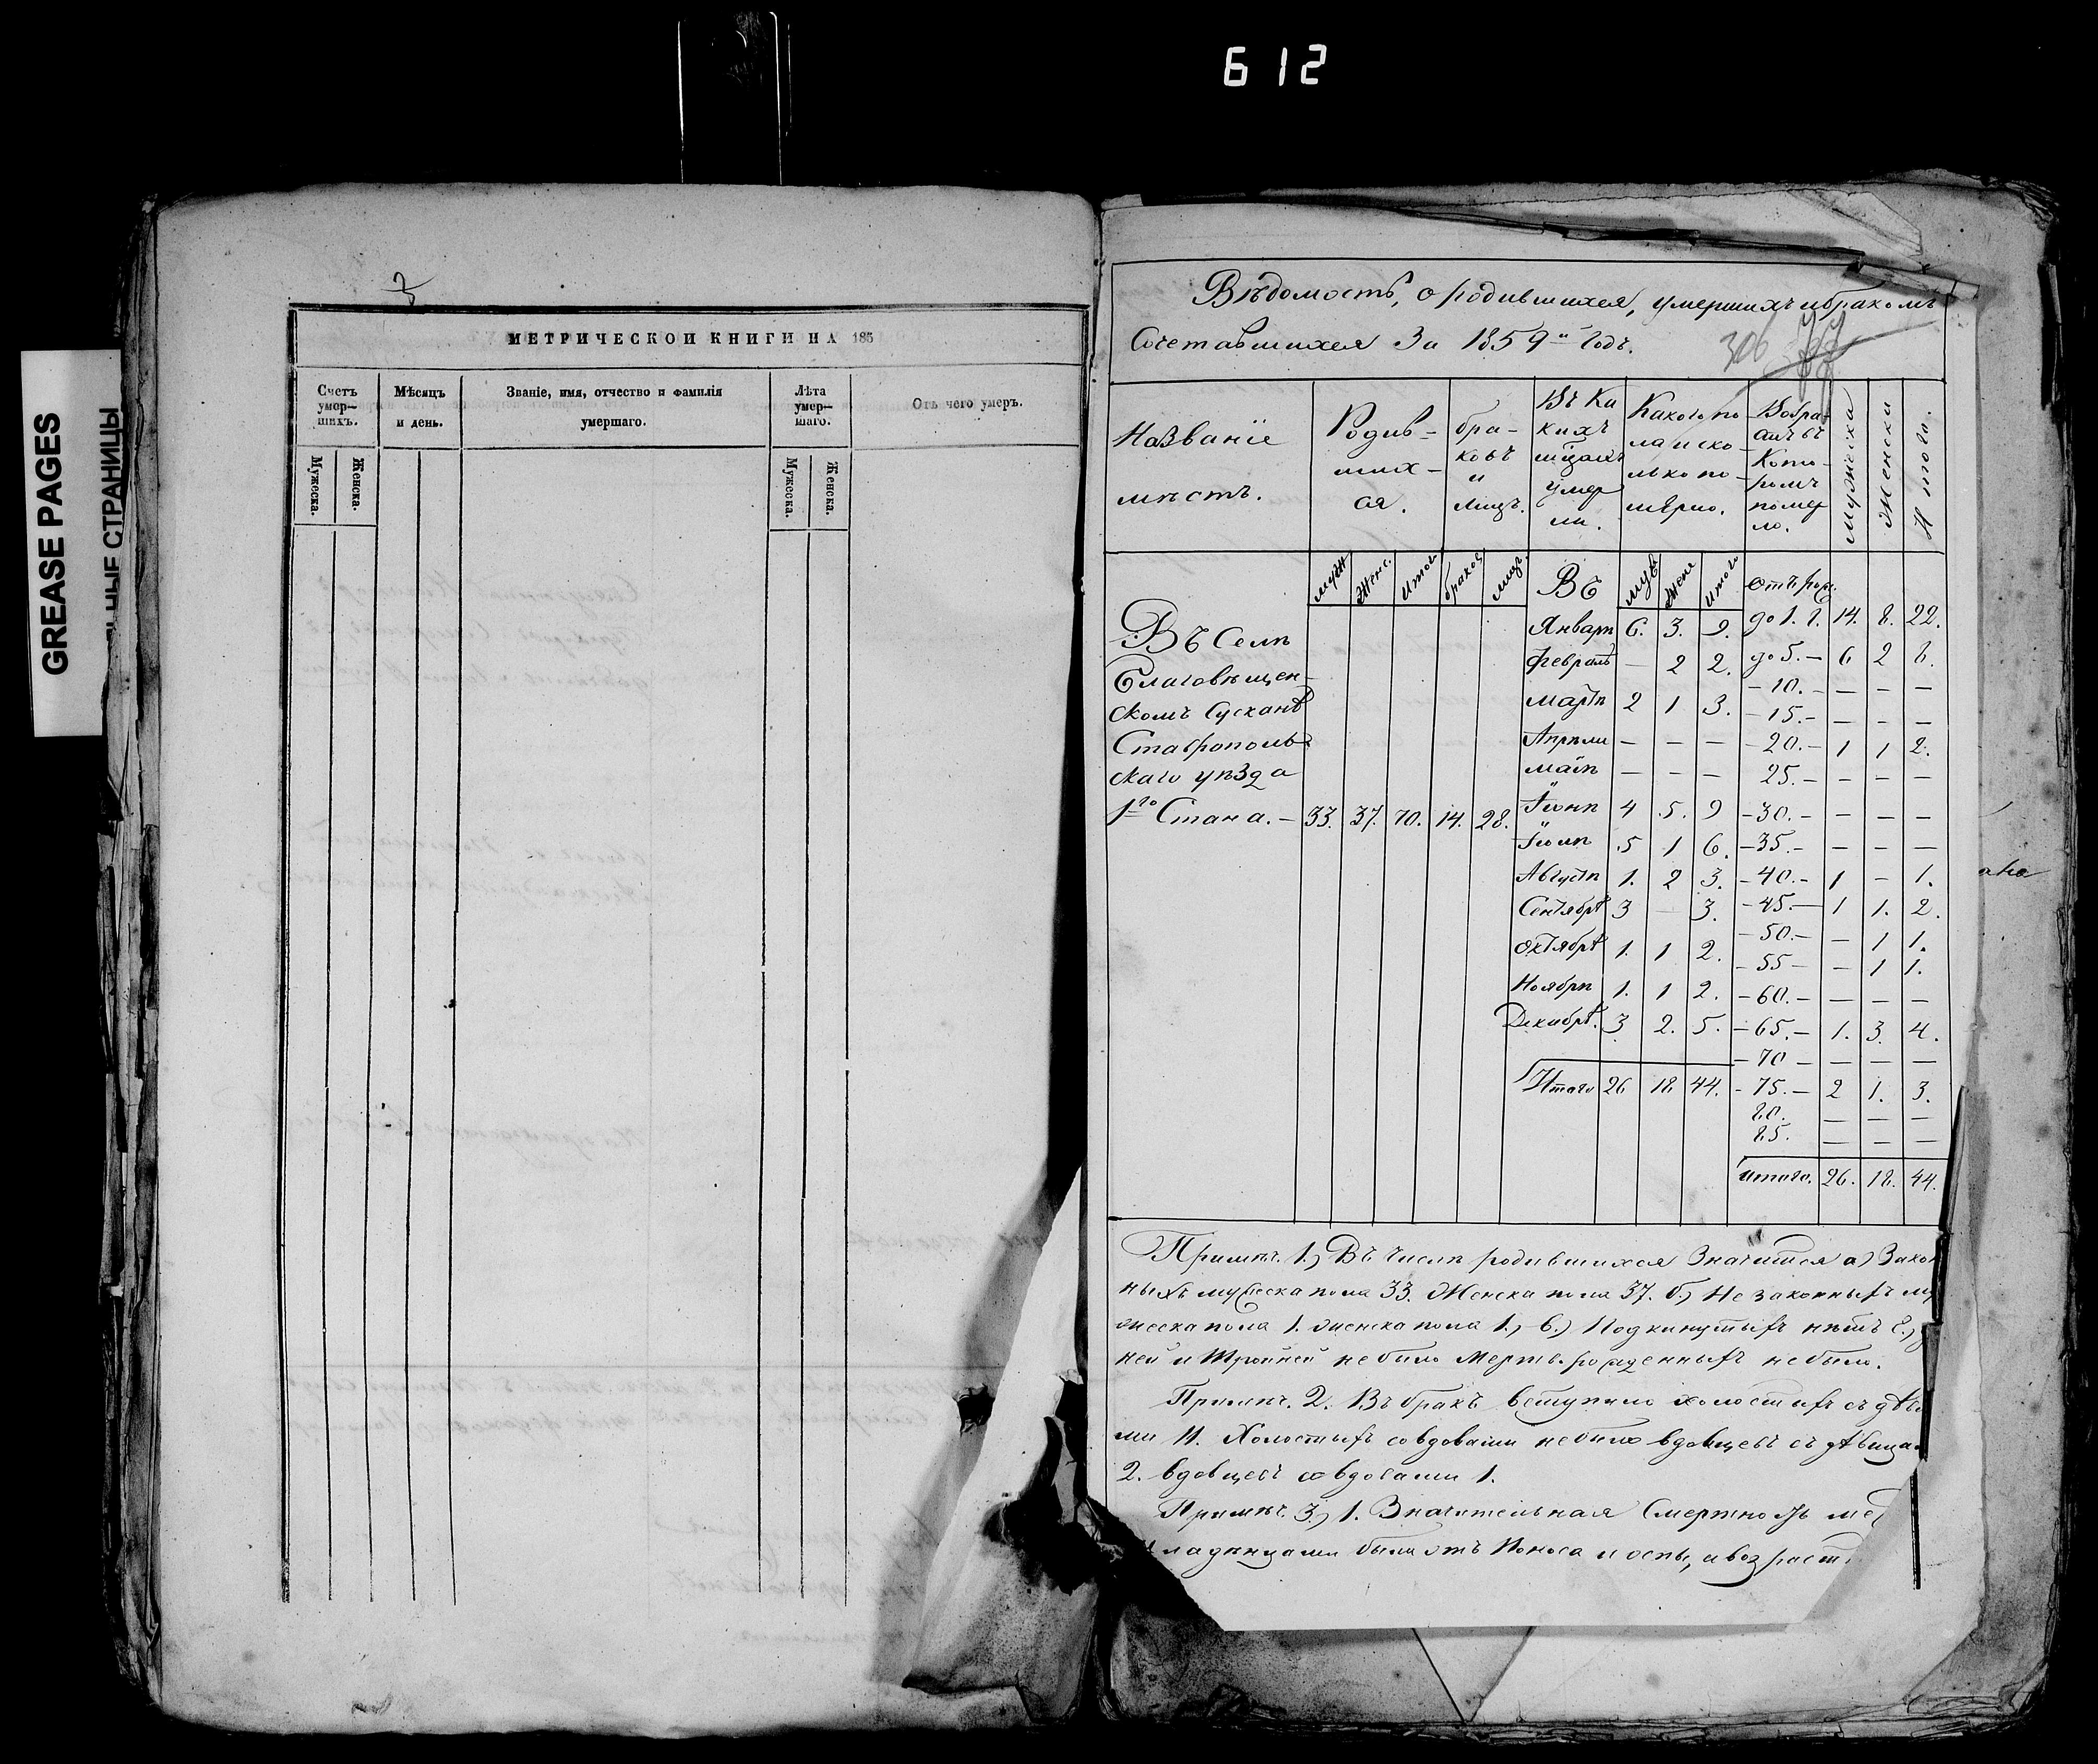 612
GREASE PAGES
СТРАНИЦЫ
МЕТРИЧЕСКОЙ КНИГИ НА 185
Счетъ умер-шихъ.
Мѣсяцъ и день.
Званіе, имя, отчество и фамилія умершаго.
Лѣта умер-шаго.
Отъ чего умеръ.
Мужеска. Женска.
Мужеска. Женска.
Вѣдомость, о родившихся, умершихъ и бракомъ
Сочетавшихся За 1859й Годъ.
306
Названіе мѣстъ.
Родив-ших-ся.
бра-ковъ и лицъ.
Въ Ка кихъ мѣсяцахъ умер ли.
Какого по ла и ско-лько по-мѣрло.
Возра-
Кото-ромъ помер ло.
мужеска
Женски
Итого.
муж Женс. итого браков лицъ. Въ муж жен итого отъ рож.
Въ Селѣ
Благовѣщен-
скомъ Сусканѣ
Ставрополь-
скаго уѣзда
1го Стана. – 33. 37. 70. 14. 28.
Январѣ 6. 3. 9. до 1. г. 14. 8. 22.
Февралѣ — 2 2. до 5. – 6 2 8.
– 10. – — — —
Мартѣ 2 1 3. – 15. – — — —
Апрѣли — — — – 20. – 1 1 2.
Маіѣ — — — 25. – — — —
Іюнѣ 4 5. 9 – 30. – — — —
Іюлѣ 5 1 6. – 35. – — — —
Августѣ 1. 2 3. – 40. – 1 – 1.
Сентябрѣ 3 — 3. – 45. — 1 1. 2.
– 50. – — 1 1.
Октябрѣ 1. 1 2. – 55 – — 1 1.
Ноябрѣ 1. 1 2. – 60. – — — —
Декабрѣ. 3 2. 5. – 65. – 1. 3. 4.
– 70 – — — —
Итого 26 18 44. – 75. – 2 1. 3.
80. — — —
85. — — —
итого. 26. 18. 44.
Примѣч. 1.) Въ числѣ родившихся Значится а) Закон
ныхъ мужеска пола 33. Женска пола 37. б.) Не законныхъ му
жеска пола 1. женска пола 1., в.) Подкинутыхъ нѣтъ г.)
ней и тройней не было мертв. рожденныхъ не было.
Примѣч. 2. Въ бракъ вступило холостыхъ съ дѣви
ми 11. Холостыхъ со вдовами не было вдовцевъ съ дѣвица
2. вдовцевъ со вдовами 1.
Примѣч. 3.) 1. Значительная Смертность ме
младенцами была отъ Поноса и оспы, а возраст